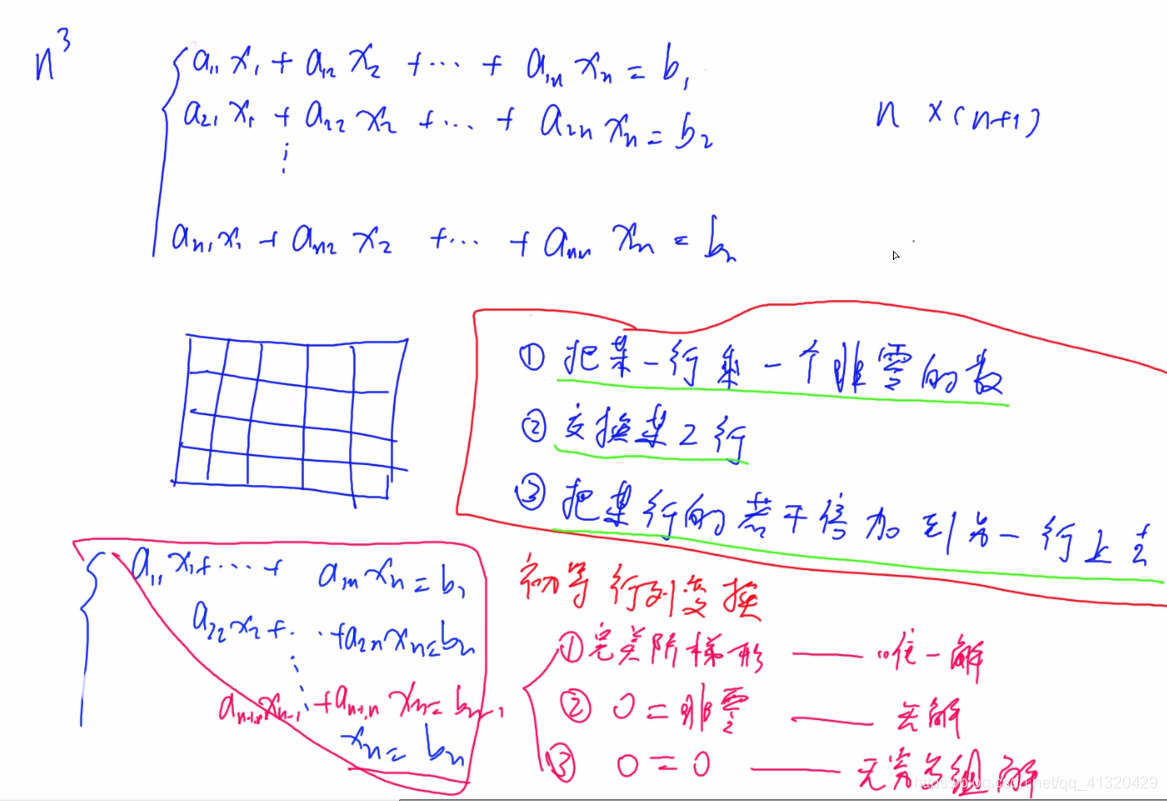 n³
a₁₁x₁ + a₁₂x₂ + ⋯ + a₁ₙxₙ = b₁
a₂₁x₁ + a₂₂x₂ + ⋯ + a₂ₙxₙ = b₂
⋮
aₙ₁x₁ + aₙ₂x₂ + ⋯ + aₙₙxₙ = bₙ
n×(n+1)
① 把某一行乘一个非零的数
② 交换某2行
③ 把某行的若干倍加到另一行上去
初等行列变换
a₁₁x₁+⋯+ a₁ₙxₙ=b₁
a₂₂x₂+⋯+a₂ₙxₙ=bₙ
⋮
aₙ₋₁,ₙ₋₁xₙ₋₁+aₙ₋₁,ₙxₙ=bₙ₋₁
xₙ=bₙ
① 完美阶梯形 —— 唯一解
② 0=非零 —— 无解
③ 0=0 —— 无穷多组解
net/qq_41320429